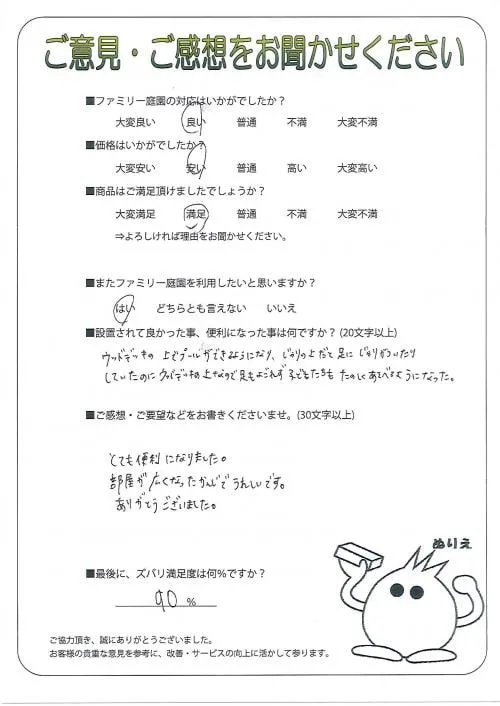 ご意見・ご感想をお聞かせください
■ファミリー庭園の対応はいかがでしたか？
大変良い 良い 普通 不満 大変不満
■価格はいかがでしたか？
大変安い 安い 普通 高い 大変高い
■商品はご満足頂けましたでしょうか？
大変満足 満足 普通 不満 大変不満
⇒よろしければ理由をお聞かせください。
■またファミリー庭園を利用したいと思いますか？
はい どちらとも言えない いいえ
■設置されて良かった事、便利になった事は何ですか？(20文字以上)
ウッドデッキの上でプールができるようになり、じゃりの上だと足にじゃりがついたり
していたのにウッドデッキの上なので足もよごれず子どもたちもたのしくあそべるようになった。
■ご感想・ご要望などをお書きくださいませ。(30文字以上)
とても便利になりました。
部屋が広くなったかんじでうれしいです。
ありがとうございました。
ぬりえ
■最後に、ズバリ満足度は何％ですか？
90 %
ご協力頂き、誠にありがとうございました。
お客様の貴重な意見を参考に、改善・サービスの向上に活かして参ります。